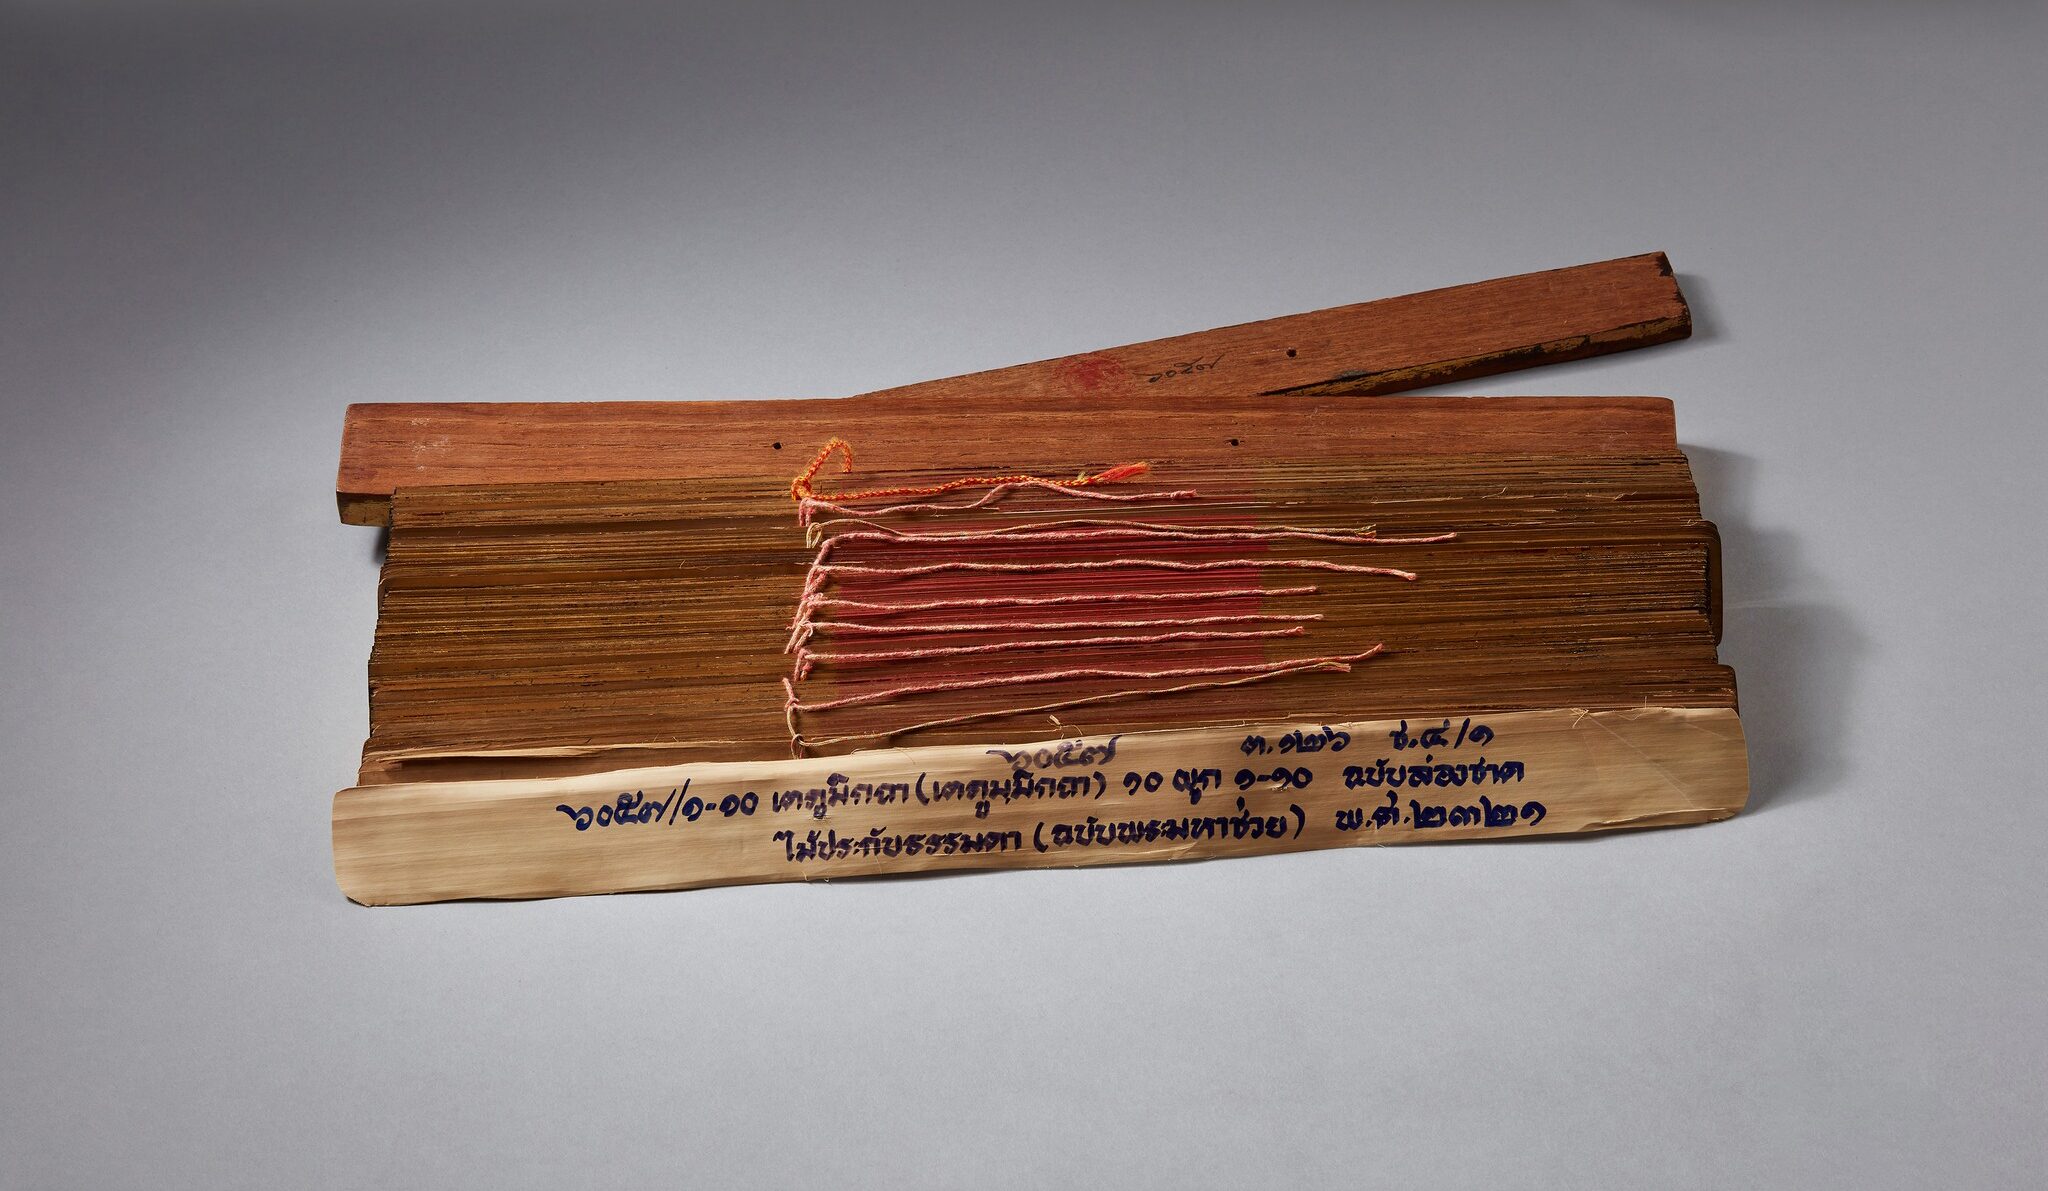 ๖๐๕๗
๖๐๕๗ ต.๑๒๖ ช.๔/๑
๖๐๕๗/๑-๑๐ เตภูมิกถา (เตภูมฺมิกถา) ๑๐ ผูก ๑-๑๐ ฉบับล่องชาด
ไม้ประกับธรรมดา (ฉบับพระมหาช่วย) พ.ศ.๒๓๒๑